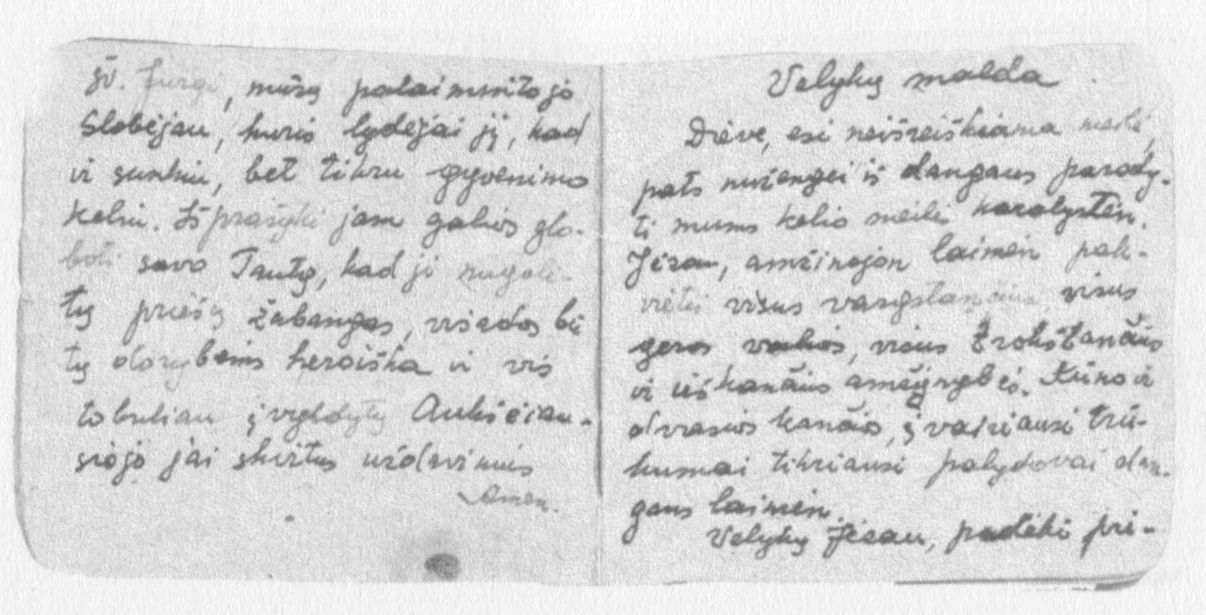 Šv. Jurgi, mūsų palaimintojo
Globėjau, kuris lydėjai jį, kad
ir sunkiu, bet tikru gyvenimo
keliu. Išprašyki jam galios glo-
boti savo Tautą, kad ji nugalė-
tų priešų žabangas, visados bū
tų dorybėmis heroiška ir vis
tobuliau įvykdytų Aukščiau-
siojo jai skirtus uždavinius
Amen.
Velykų malda
Dieve, esi neišreiškiama meilė,
pats nužengei iš dangaus parody-
ti mums kelio meilės karalystėn.
Jėzau, amžinojon laimėn pak-
vietei visus vargstančius visus
geros valios, visus trokštančius
ir ieškančius amžinybės. Kūno ir
dvasios kančios, įvairiausi trū-
kumai tikriausi palydovai dan-
gaus laimėn.
Velykų Jėzau, padėki pri-